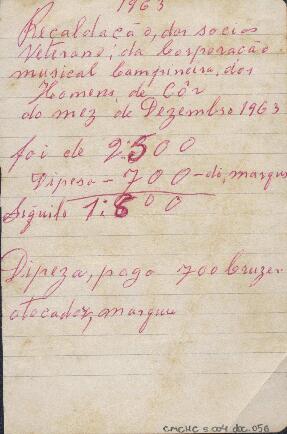 1963
Recaldação, dos socios
Veterano, da Corporacão
musical Campineira, dos
Homens, de Côr
do mez de Dezembro 1963
foi de 2:500
Dipeso - 700 - do, marque
Siguito 1:800
Dipeza, pago 700 Cruzer
atocador, marque
CMCHC s 004 doc. 056